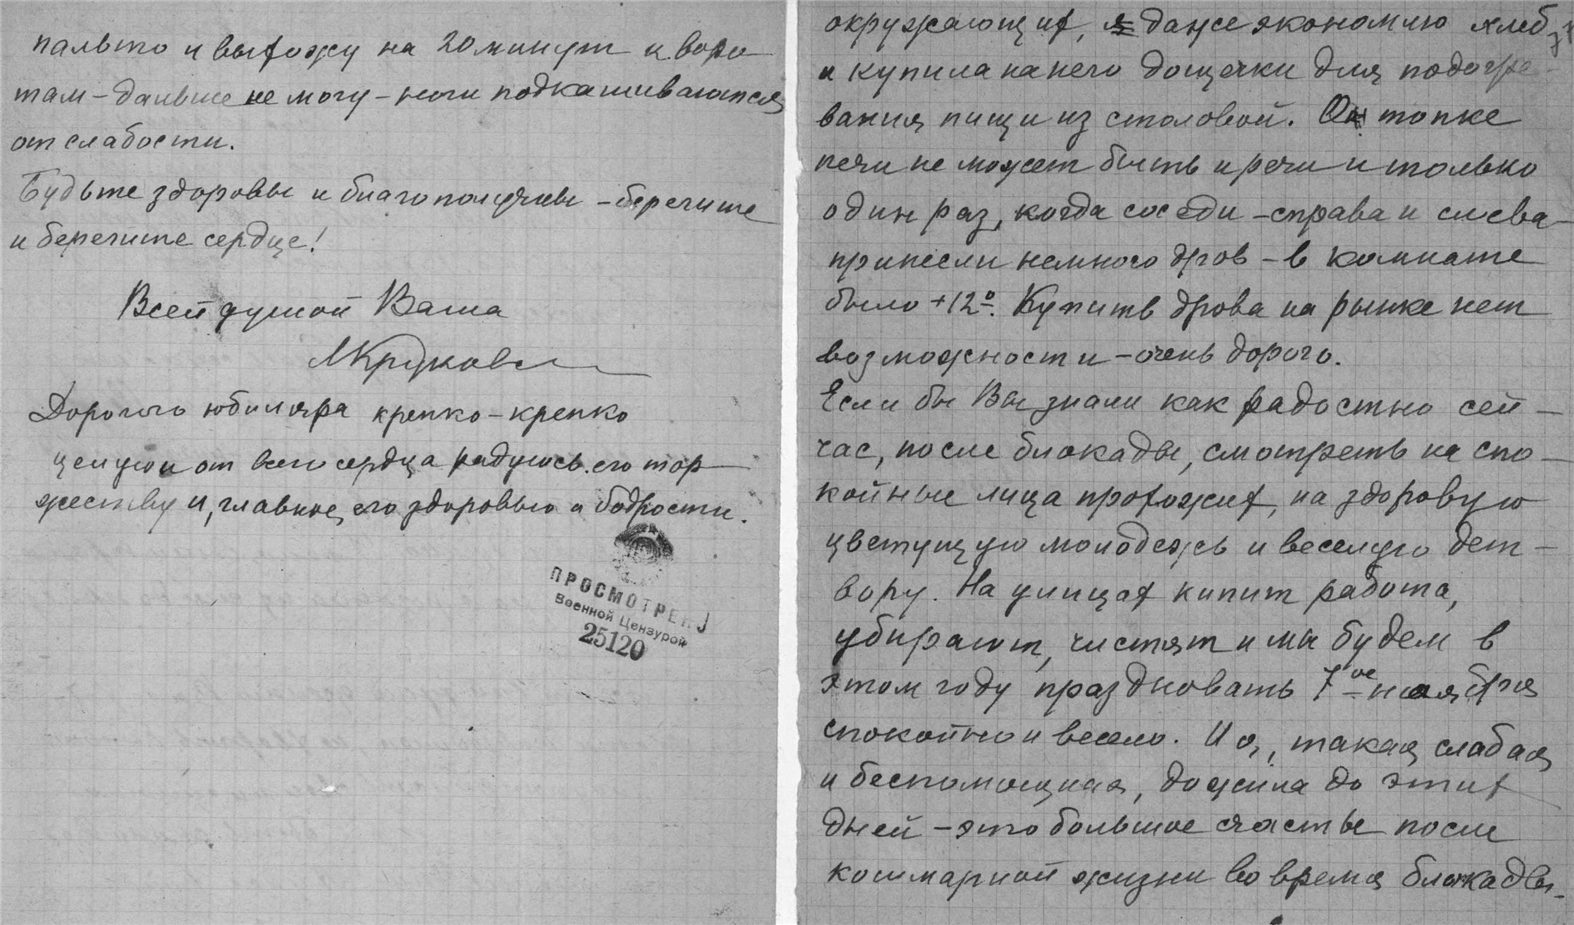 пальто и выхожу на 20 минут к воро-
там – дальше не могу – ноги подкашиваются
от слабости.
Будьте здоровы и благополучны – берегите
и берегите сердце!
Всей душой Ваша
Дорогого юбиляра крепко-крепко
целую и от всего сердца радуюсь его тор-
жеству и, главное, его здоровью и бодрости.
ПРОСМОТРЕНО
Военной Цензурой
25120
окружающих, я даже экономлю хлеб
и купила на него дощечки для подогре-
вания пищи из столовой. О топке
печи не может быть и речи и только
один раз, когда соседи – справа и слева –
принесли немного дров – в комнате
было +12°. Купить дрова на рынке нет
возможности – очень дорого.
Если бы Вы знали как радостно сей-
час, после блокады, смотреть на спо-
койные лица прохожих, на здоровую
цветущую молодежь и веселую дет-
вору. На улицах кипит работа,
убирают, чистят и мы будем в
этом году праздновать 7ое ноября
спокойно и весело. И я, такая слабая
и беспомощная, дожила до этих
дней – это большое счастье после
кошмарной жизни во время блокады.